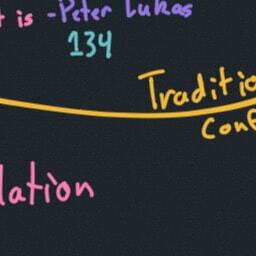 t is -Peter Lukas
134
Traditio
Conf
lation